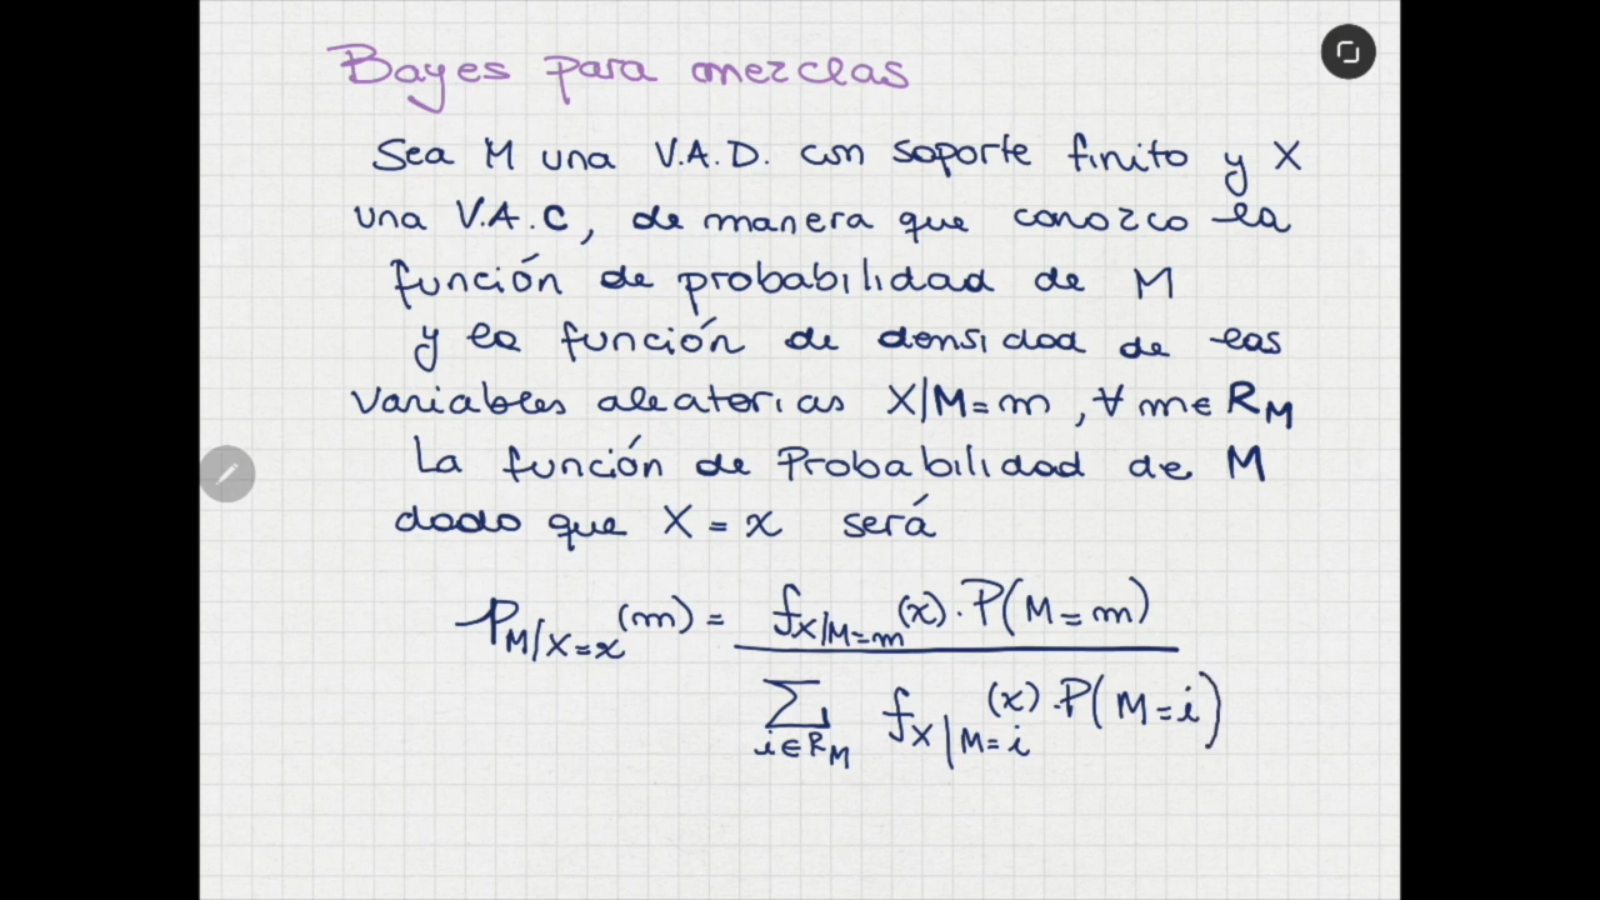 Bayes para mezclas
Sea M una V.A.D. con soporte finito y X
una V.A.C, de manera que conozco la
función de probabilidad de M
y la función de densidad de las
variables aleatorias X|M=m, ∀ m∈ R_M
La función de Probabilidad de M
dado que X = x será
P_{M/X=x}(m) = \frac{f_{X|M=m}(x) · P(M=m)}{\sum_{i∈R_M} f_{X|M=i}(x) · P(M=i)}